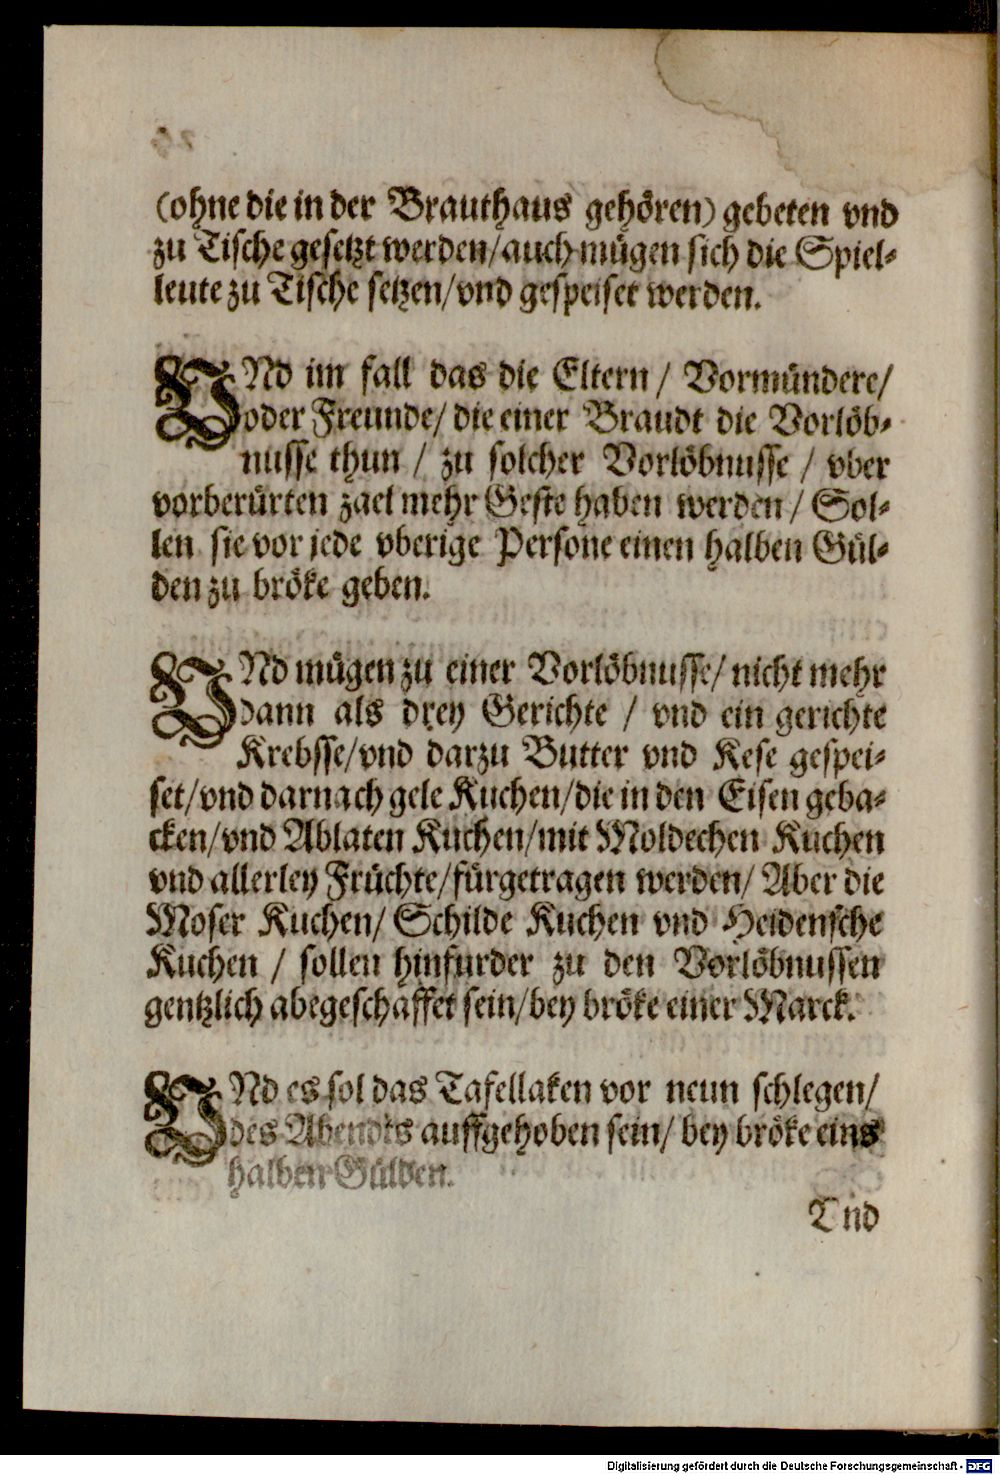 (ohne die in der Brauthaus gehören) gebeten vnd
zu Tische gesetzt werden/auch mügen sich die Spiel-
leute zu Tische setzen/vnd gespeiset werden.
VNd im fall das die Eltern / Vormündere/
oder Freunde/ die einer Braudt die Vorlöb-
nusse thun / zu solcher Vorlöbnusse / vber
vorberürten zael mehr Geste haben werden/ Sol-
len sie vor jede vberige Persone einen halben Gül-
den zu bröke geben.
VNd mügen zu einer Vorlöbnusse/ nicht mehr
dann als drey Gerichte / vnd ein gerichte
Krebsse/vnd darzu Butter vnd Kese gespei-
set/vnd darnach gele Kuchen/die in den Eisen geba-
cken/vnd Ablaten Kuchen/mit Moldechen Kuchen
vnd allerley Früchte/fürgetragen werden/ Aber die
Moser Kuchen/ Schilde Kuchen vnd Heidensche
Kuchen / sollen hinfurder zu den Vorlöbnussen
gentzlich abegeschaffet sein/bey bröke einer Marck.
VNd es sol das Tafellaken vor neun schlegen/
des Abendts auffgehoben sein/ bey bröke eins
halben Gülden.
Vnd
Digitalisierung gefördert durch die Deutsche Forschungsgemeinschaft - DFG